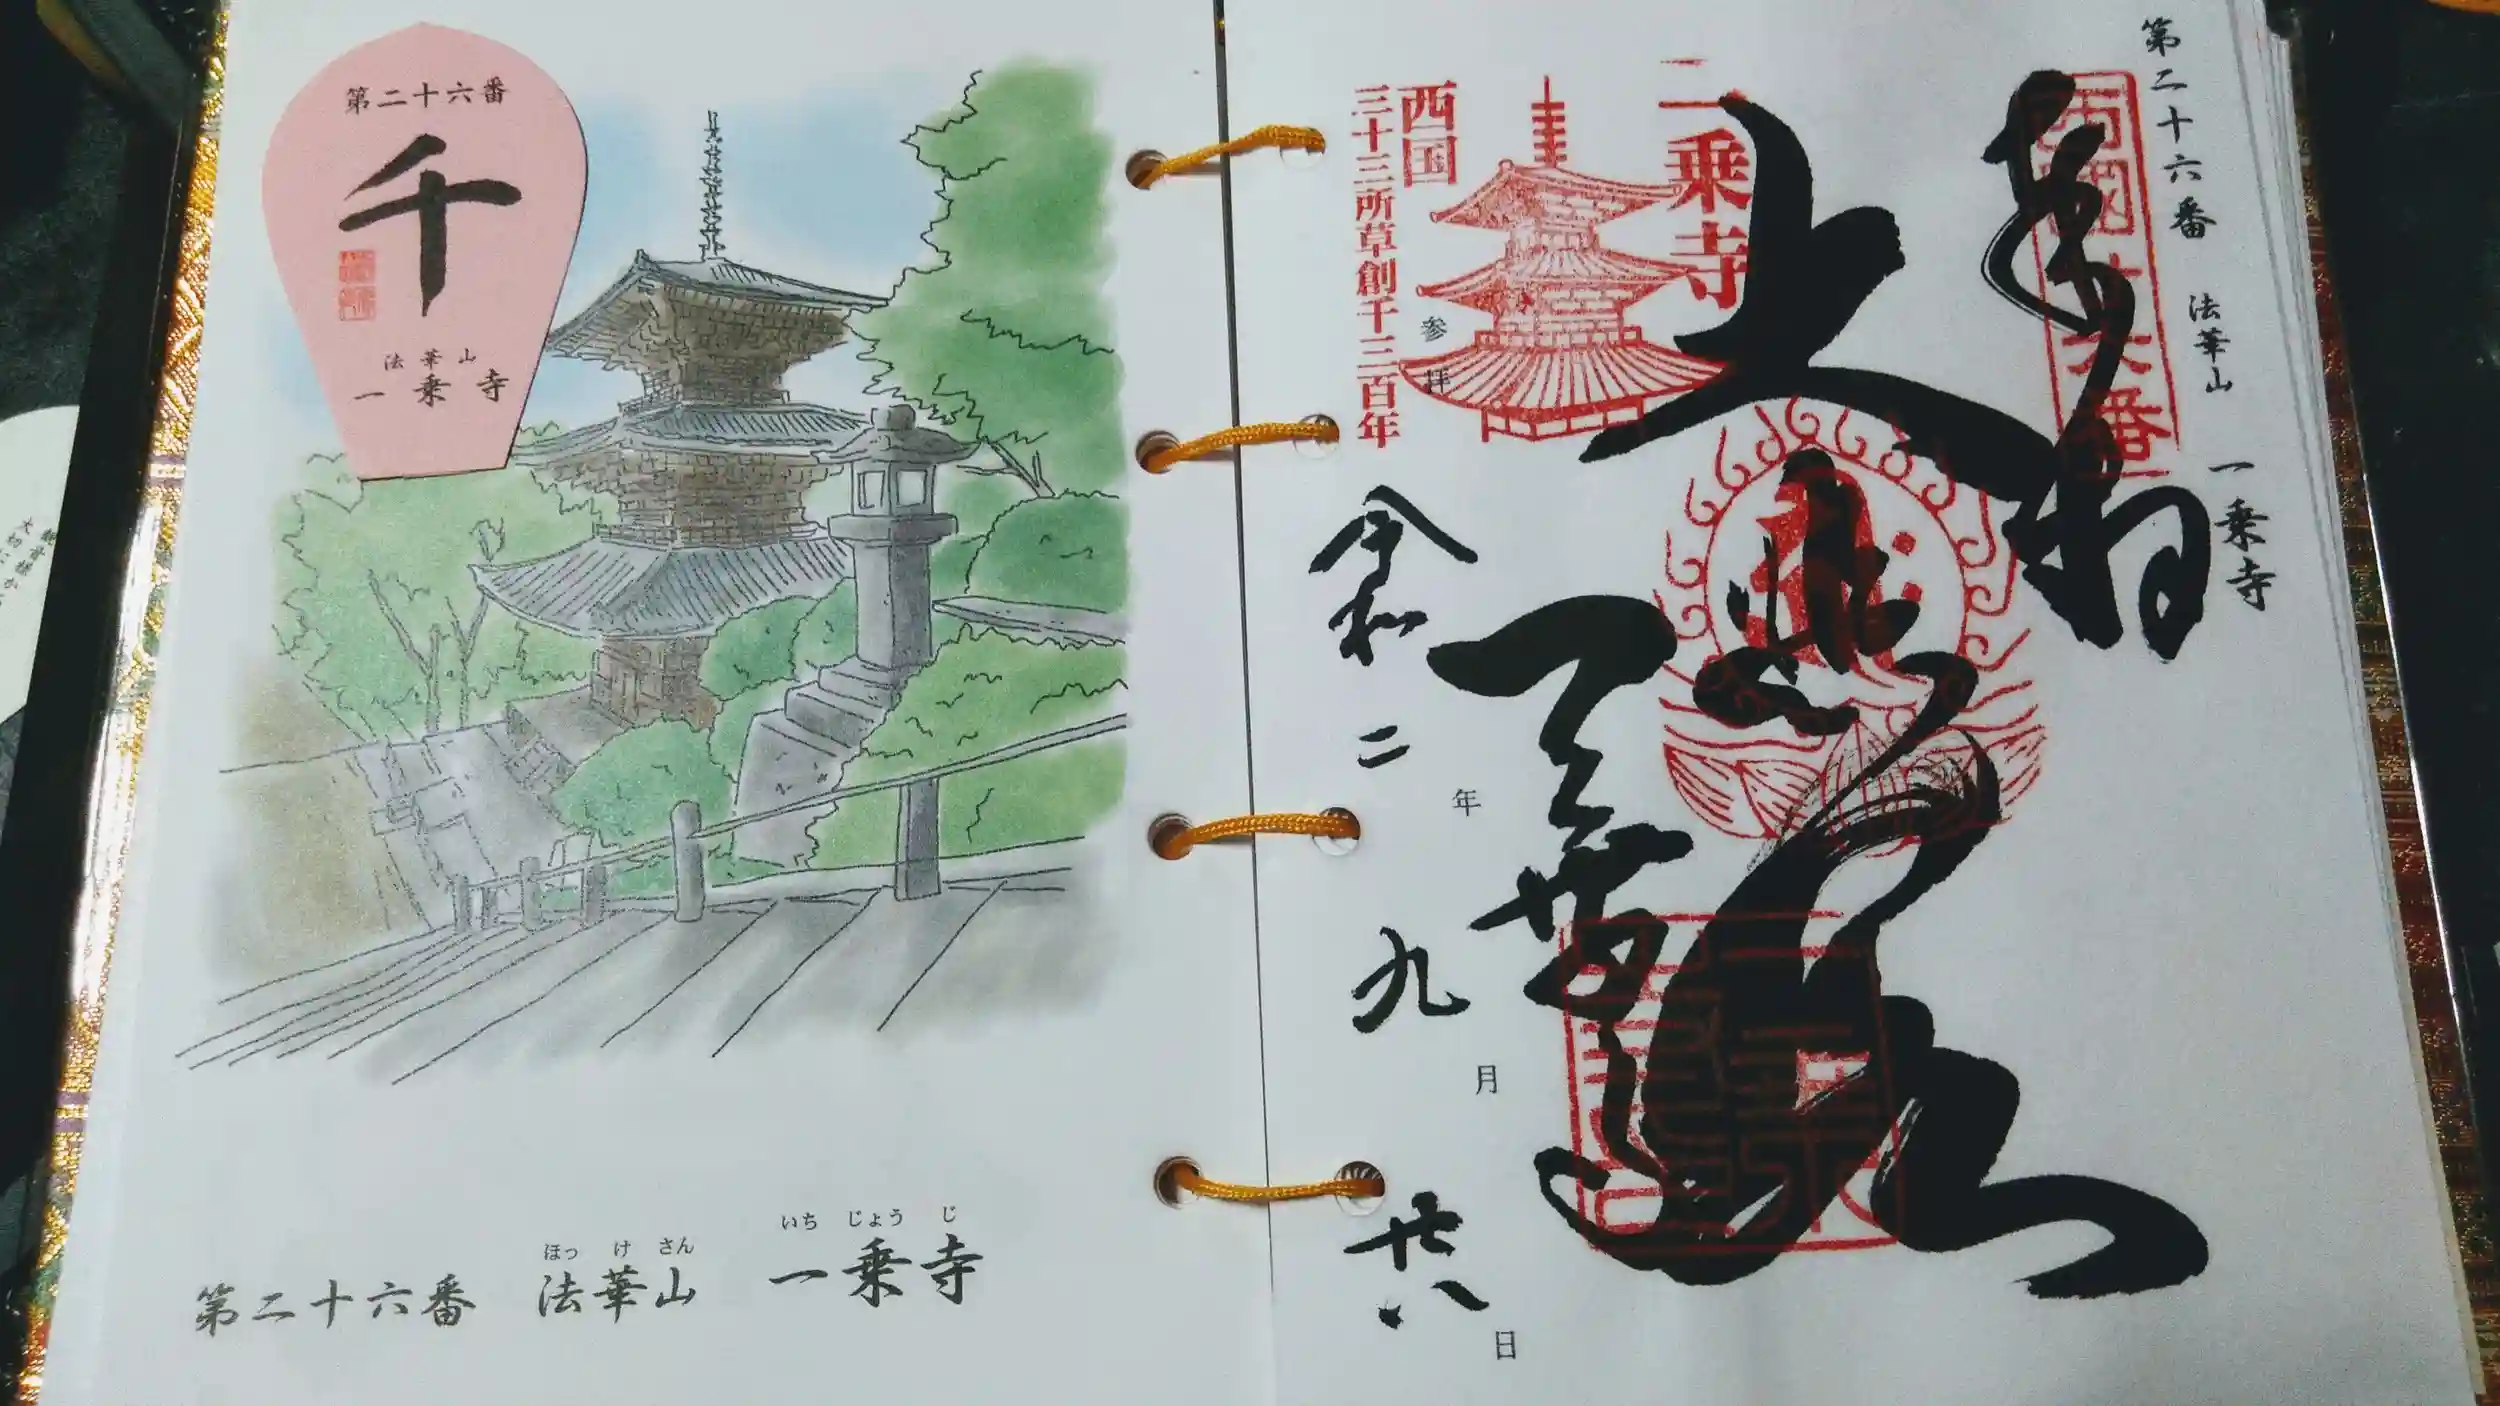 第二十六番
千
法華山
一乗寺
第二十六番 法華山 一乗寺
ほっ け さん いち じょう じ
第二十六番 法華山 一乗寺
奉拝
大悲殿
法華山
一乗寺
西国
三十三所草創千三百年
参拝
令和二年九月廿八日